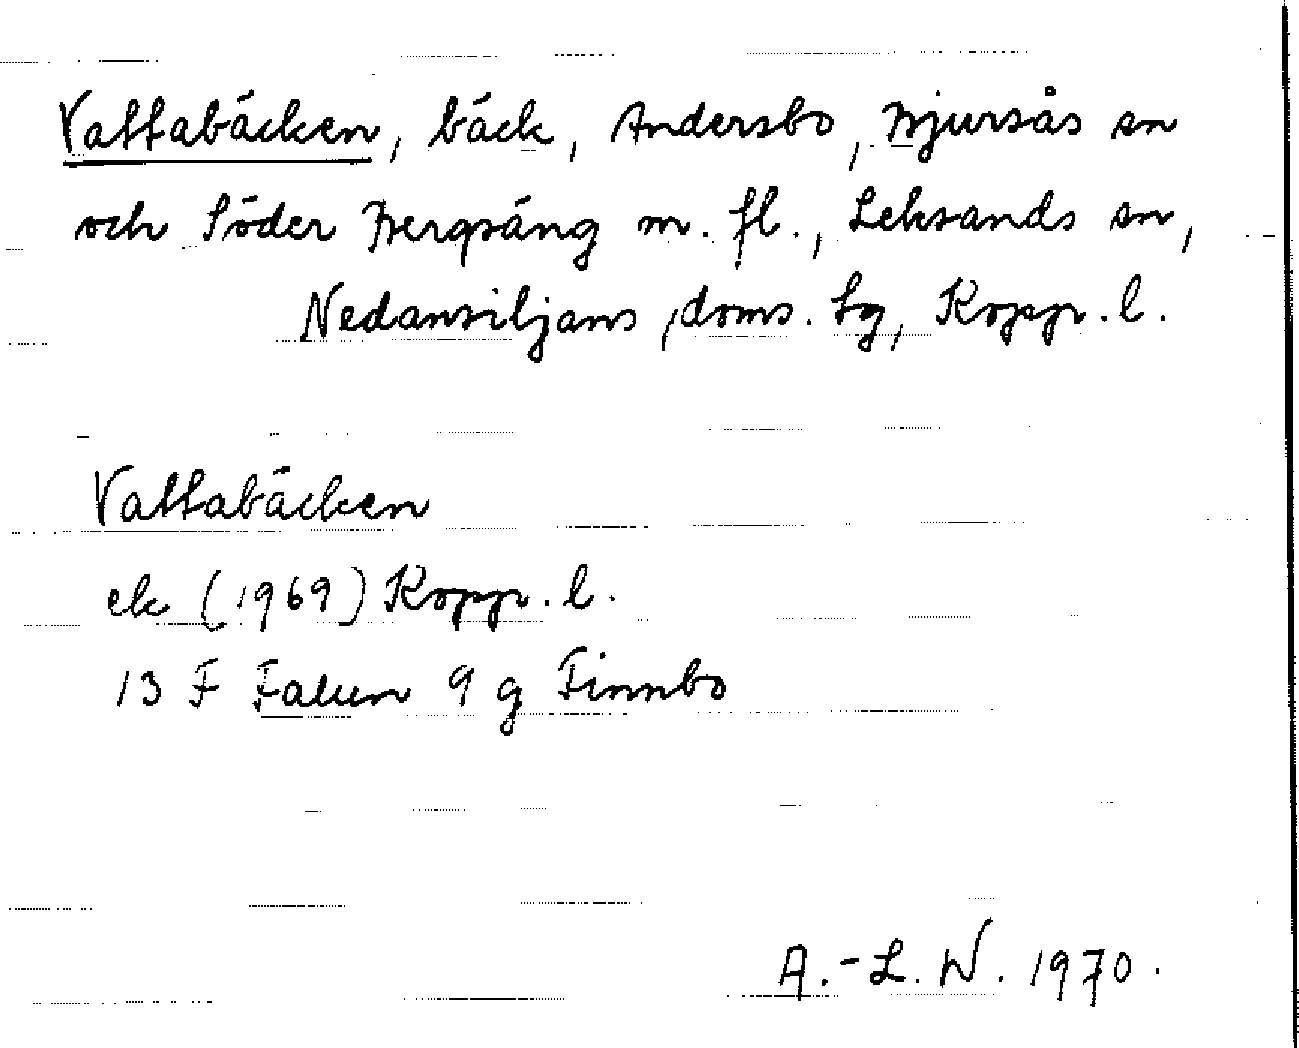 Vattabäcken, bäck, Andersbo, Bjursås sn
och Söder Bergsäng m. fl., Leksands sn,
Nedansiljans doms. tg, Kopp. l.
Vattabäcken
ek (1969) Kopp. l.
13 F Falun 9 g Finnbo
A.-L. W. 1970.